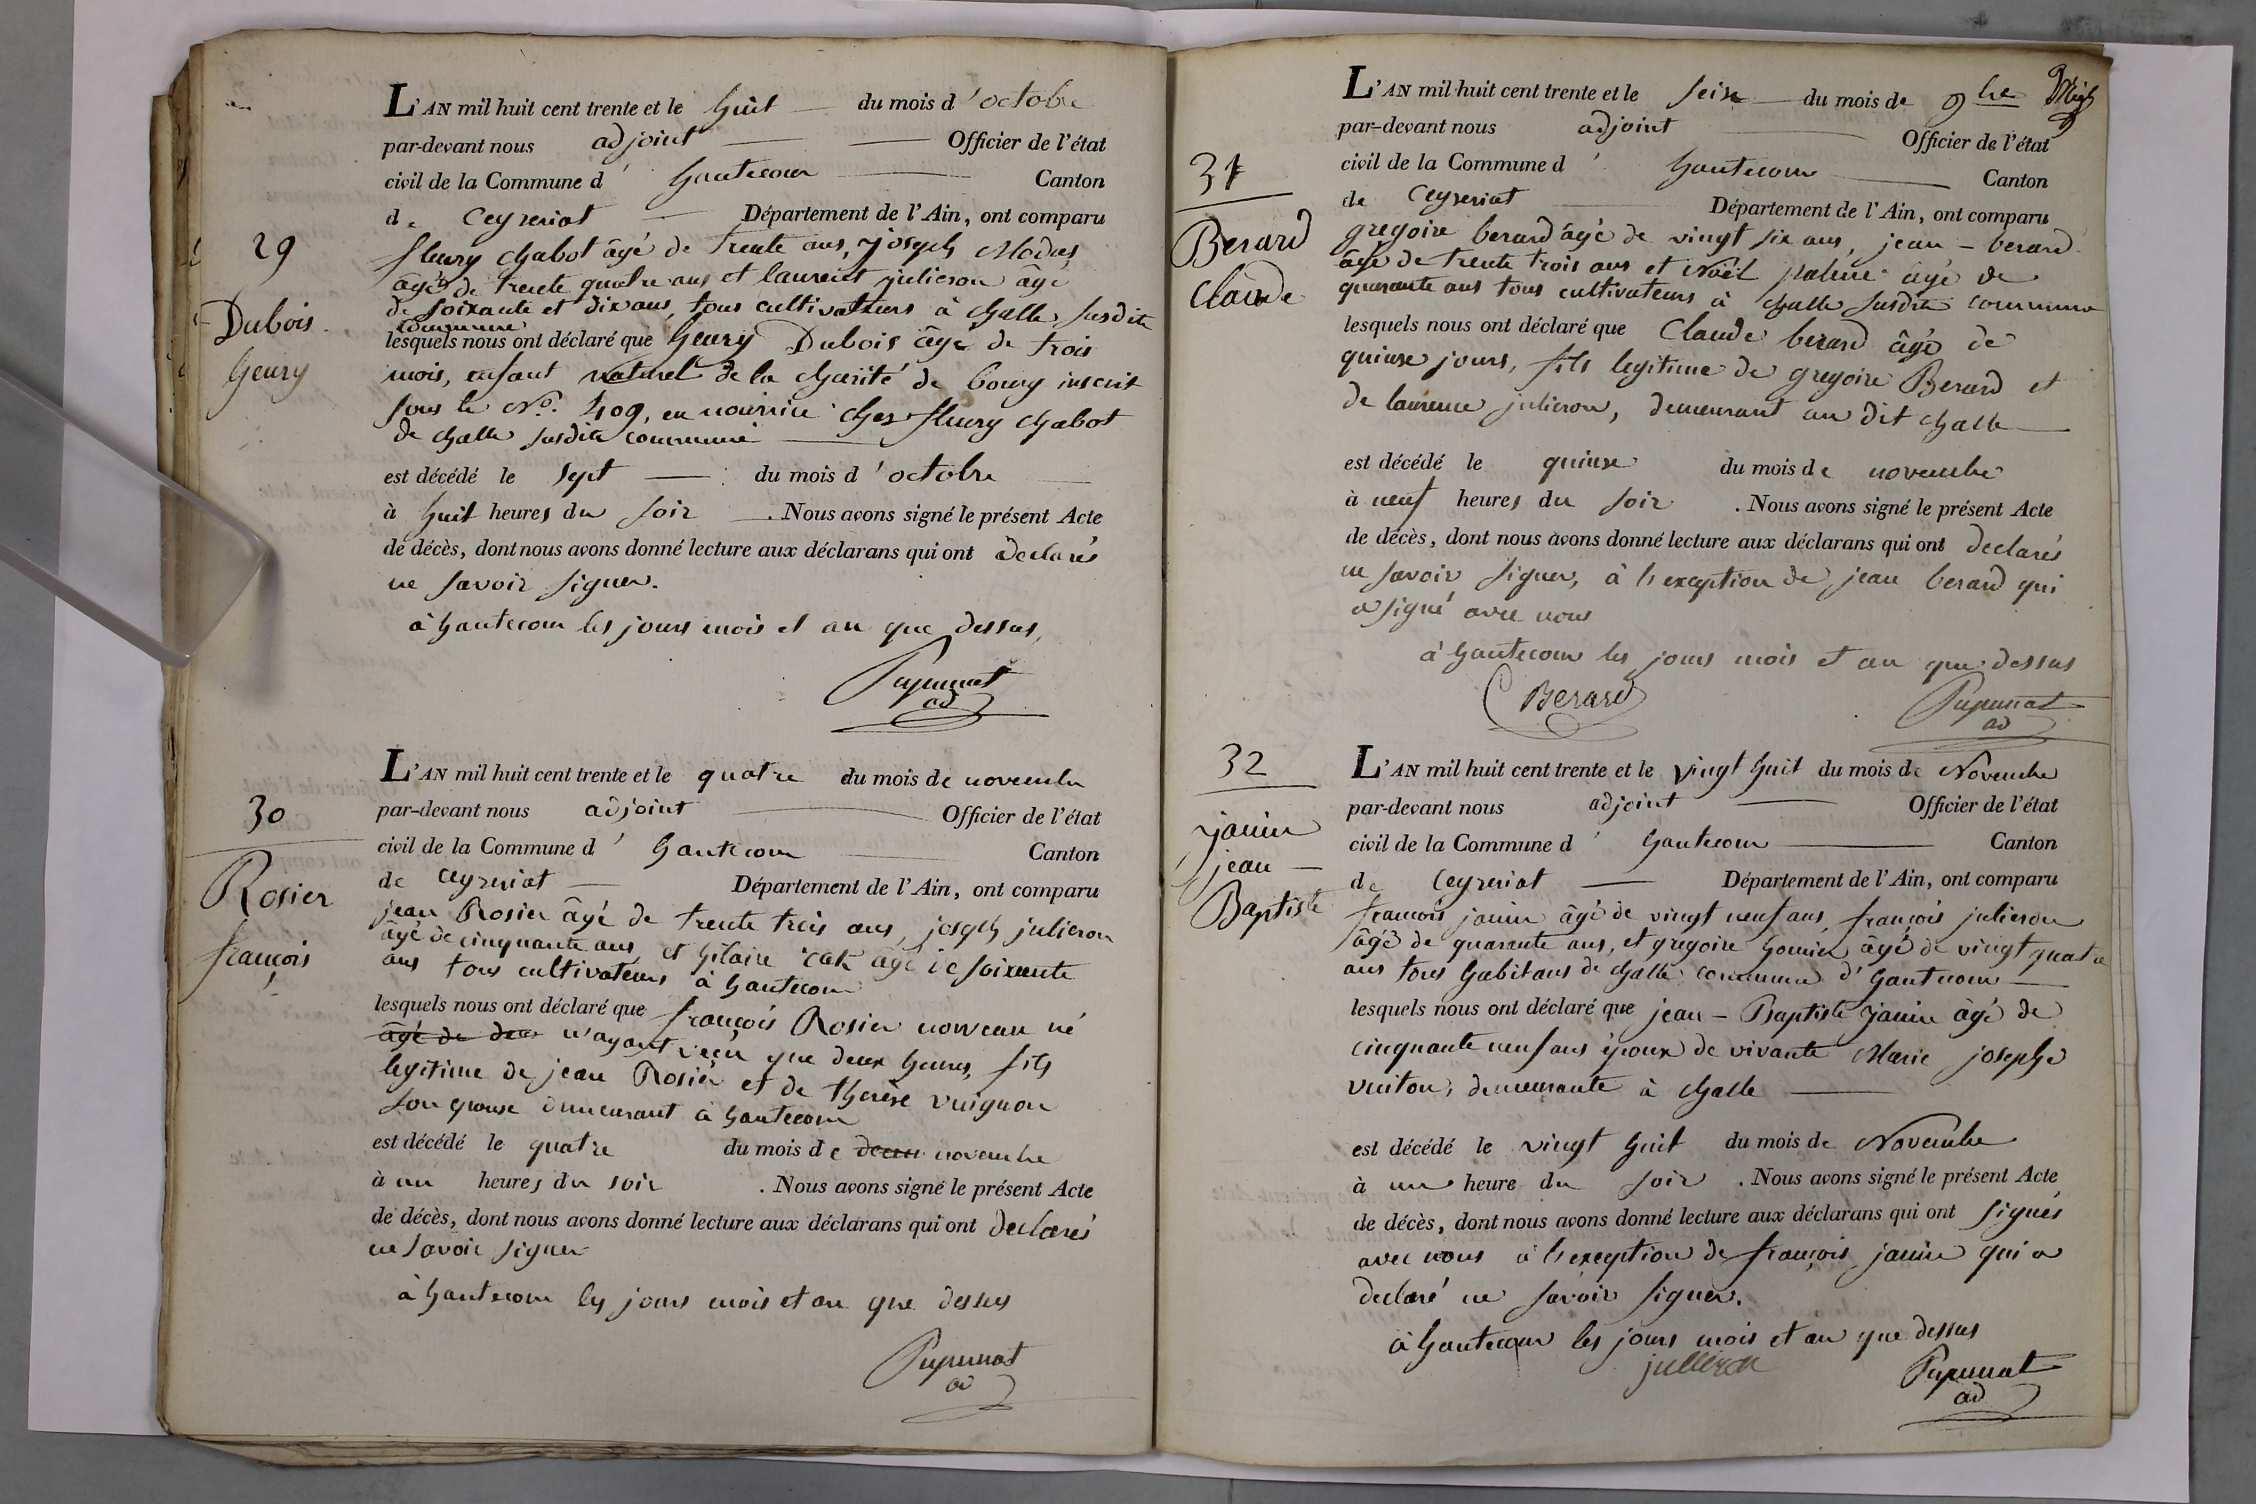 L'AN mil huit cent trente et le huit du mois d'octobre
par-devant nous adjoint Officier de l'état
civil de la Commune d'hautecour Canton
de Ceyzeriat Département de l'Ain, ont comparu
29
fleury chabot âgé de trente ans, joseph Modas
âgé de trente quatre ans et laurent julieron âgé
de soixante et dix ans, tous cultivateurs à challe susdite
commune
Dubois
henry
lesquels nous ont déclaré que henry Dubois âgé de trois
mois, enfant naturel de la charité de bourg inscrit
sous le No. 409, en nourrice chez fleury chabot
de challe susdite commune
est décédé le sept du mois d'octobre
à huit heures du soir. Nous avons signé le présent Acte
de décès, dont nous avons donné lecture aux déclarans qui ont declarés
ne savoir signer.
à hautecour les jours mois et an que dessus,
ad
L'AN mil huit cent trente et le quatre du mois de novembre
par-devant nous adjoint Officier de l'état
30
civil de la Commune d'hautecour Canton
de ceyzeriat Département de l'Ain, ont comparu
Rosier
françois
jean Rosier âgé de trente trois ans, joseph julieron
âgé de cinquante ans, et hilaire âgé de soixante
ans tous cultivateurs à hautecour
lesquels nous ont déclaré que françois Rosier nouveau né
âgé de deux n'ayant vécu que deux heures, fils
legitime de jean Rosier et de therèse vuignon
son epouse demeurant à hautecour
est décédé le quatre du mois de novembre
à un heures du soir. Nous avons signé le présent Acte
de décès, dont nous avons donné lecture aux déclarans qui ont declarés
ne savoir signer
à hautecour les jours mois et an que dessus
ad
L'AN mil huit cent trente et le seize du mois de 9bre
par-devant nous adjoint Officier de l'état
31
civil de la Commune d'hautecour Canton
de Ceyzeriat Département de l'Ain, ont comparu
Berard
Claude
gregoire berard âgé de vingt six ans, jean-berard
âgé de trente trois ans et Noël âgé de
quarante ans tous cultivateurs à challe susdite commune
lesquels nous ont déclaré que Claude berard âgé de
quinze jours, fils legitime de gregoire Berard et
de laurence julieron, demeurant au dit challe
est décédé le quinze du mois de novembre
à neuf heures du soir. Nous avons signé le présent Acte
de décès, dont nous avons donné lecture aux déclarans qui ont declarés
ne savoir signer, à l'exception de jean berard qui
a signé avec nous
à hautecour les jours mois et an que dessus
Berard
ad
32
L'AN mil huit cent trente et le vingt huit du mois de Novembre
par-devant nous adjoint Officier de l'état
janin
jean-
Baptiste
civil de la Commune d'hautecour Canton
de Ceyzeriat Département de l'Ain, ont comparu
françois janin âgé de vingt neuf ans, françois julieron
âgé de quarante ans, et gregoire âgé de vingt quatre
ans tous habitans de challe commune d'hautecour
lesquels nous ont déclaré que jean-Baptiste janin âgé de
cinquante neuf ans époux de vivante Marie josephe
vuiton, demeurante à challe
est décédé le vingt huit du mois de Novembre
à une heure du soir. Nous avons signé le présent Acte
de décès, dont nous avons donné lecture aux déclarans qui ont signés
avec nous à l'exception de françois janin qui a
declaré ne savoir signer.
à hautecour les jours mois et an que dessus
julliron
ad